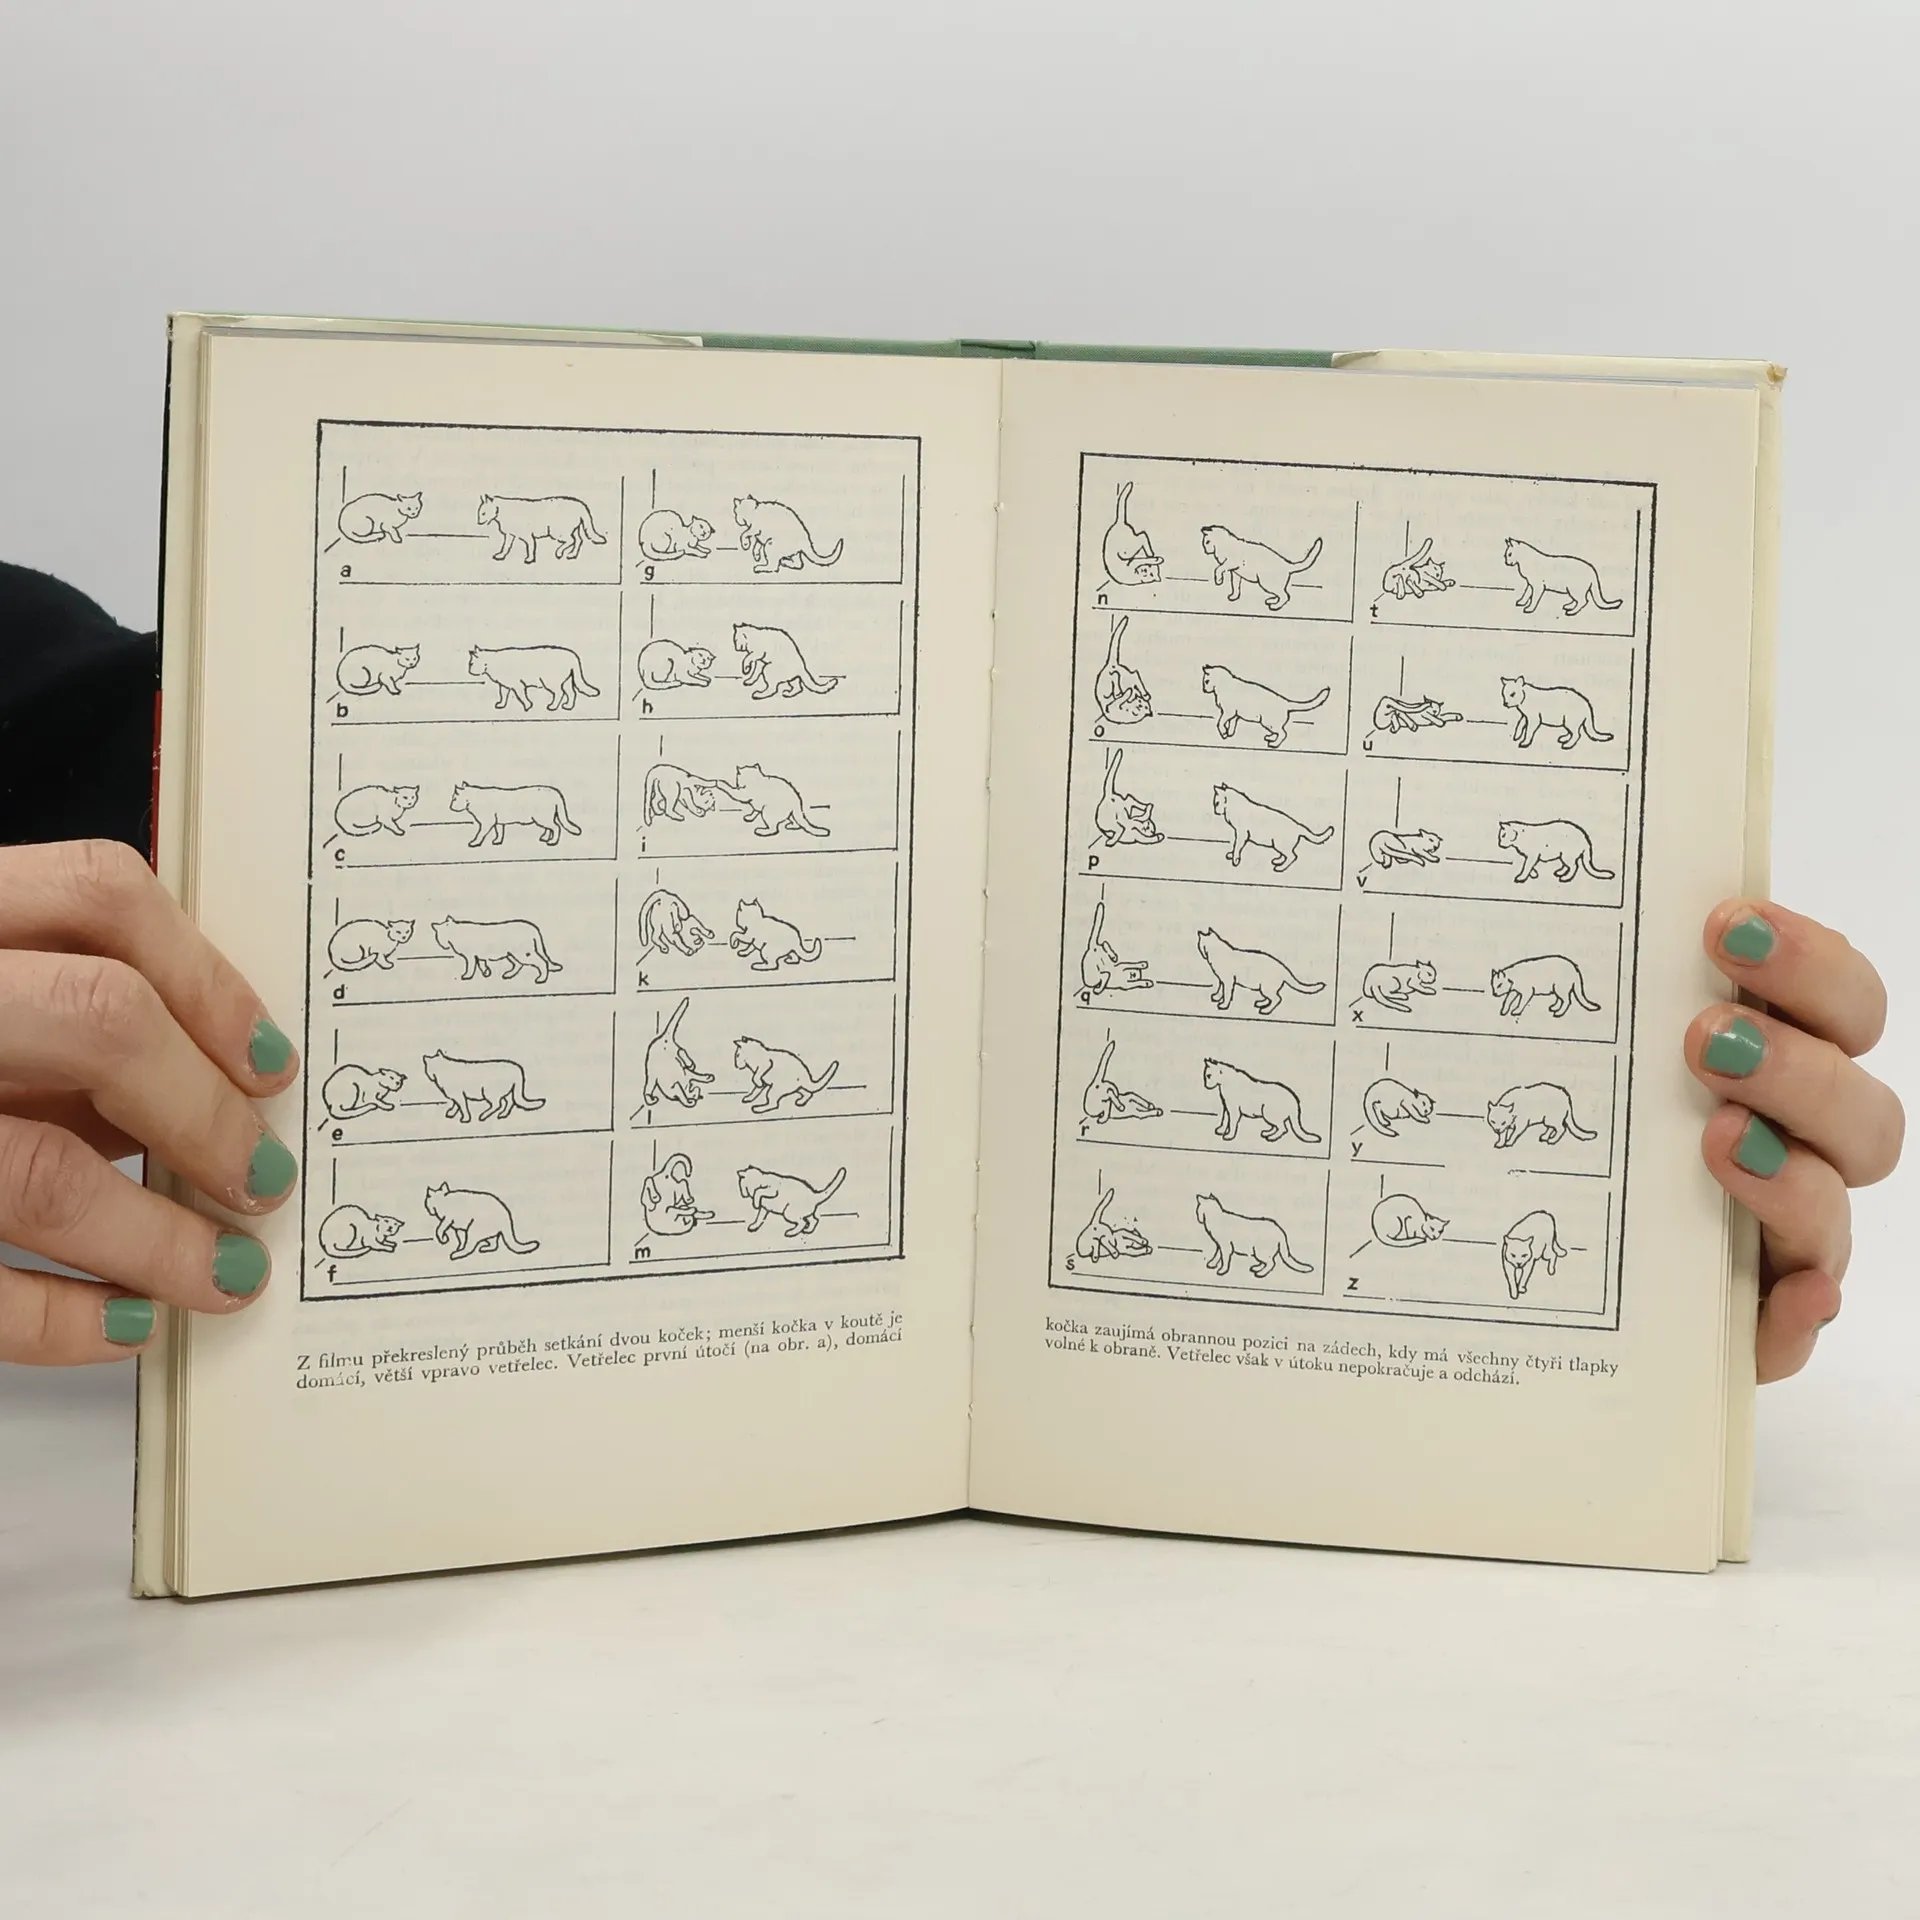 a
g
b
h
c
i
d
k
e
l
f
m
Z filmu překreslený průběh setkání dvou koček; menší kočka v koutě je
domácí, větší vpravo vetřelec. Vetřelec první útočí (na obr. a), domácí
n
t
o
u
p
v
q
x
r
y
s
z
kočka zaujímá obrannou pozici na zádech, kdy má všechny čtyři tlapky
volné k obraně. Vetřelec však v útoku nepokračuje a odchází.